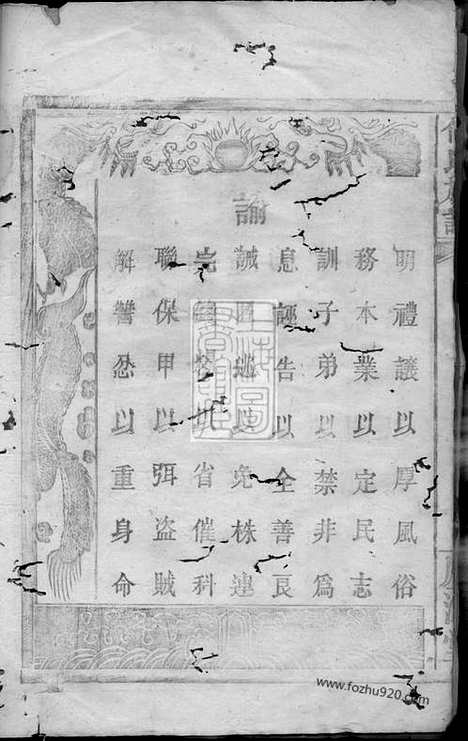 諭
明禮讓以厚風俗
務本業以定民志
訓子弟以禁非為
息誣告以全善良
誡匿逃以免株連
完錢糧以省催科
聯保甲以弭盜賊
解讐忿以重身命
www.fozhu920.com